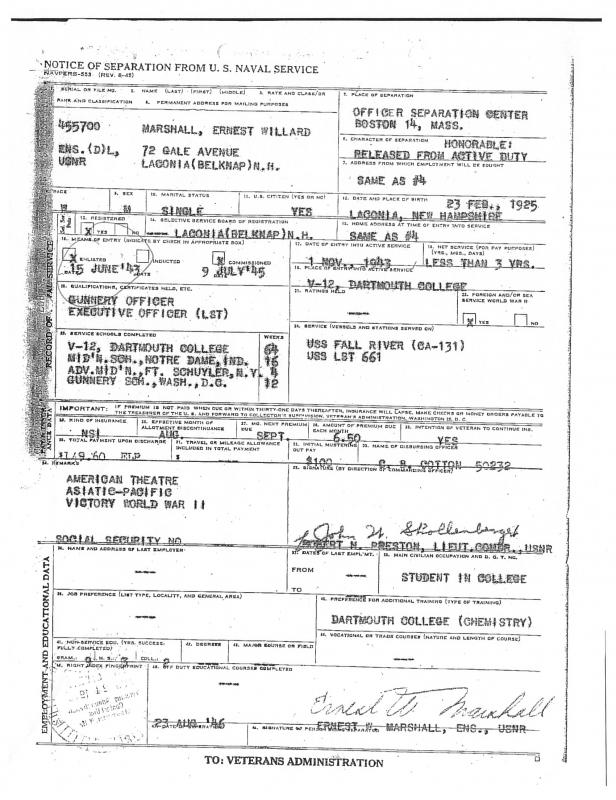 NOTICE OF SEPARATION FROM U. S. NAVAL SERVICE
NAVPERS-553 (REV. 8-45)
SERIAL OR FILE NO. 2. NAME (LAST) (FIRST) (MIDDLE) 3. RATE AND CLASS/OR
RANK AND CLASSIFICATION 4. PERMANENT ADDRESS FOR MAILING PURPOSES
455700 MARSHALL, ERNEST WILLARD
ENS. (D)L, 72 GALE AVENUE
USNR LACONIA(BELKNAP)N.H.
5. PLACE OF SEPARATION
OFFICER SEPARATION CENTER
BOSTON 14, MASS.
6. CHARACTER OF SEPARATION HONORABLE:
RELEASED FROM ACTIVE DUTY
7. ADDRESS FROM WHICH EMPLOYMENT WILL BE SOUGHT
SAME AS #4
RACE 9. SEX 10. MARITAL STATUS 11. U.S. CITIZEN (YES OR NO) 12. DATE AND PLACE OF BIRTH
W M SINGLE YES
23 FEB., 1925
LACONIA, NEW HAMPSHIRE
13. REGISTERED 14. SELECTIVE SERVICE BOARD OF REGISTRATION
X YES NO LACONIA(BELKNAP)N.H.
15. HOME ADDRESS AT TIME OF ENTRY INTO SERVICE
SAME AS #4
16. MEANS OF ENTRY (INDICATE BY CHECK IN APPROPRIATE BOX)
X ENLISTED INDUCTED X COMMISSIONED
15 JUNE'43 9 JULY'45
17. DATE OF ENTRY INTO ACTIVE SERVICE
1 NOV., 1943
18. NET SERVICE (FOR PAY PURPOSES)
(YRS., MOS., DAYS)
LESS THAN 3 YRS.
19. PLACE OF ENTRY INTO ACTIVE SERVICE
V-12, DARTMOUTH COLLEGE
20. QUALIFICATIONS, CERTIFICATES HELD, ETC.
GUNNERY OFFICER
EXECUTIVE OFFICER (LST)
21. RATINGS HELD
22. FOREIGN AND/OR SEA
SERVICE WORLD WAR II
X YES NO
23. SERVICE SCHOOLS COMPLETED WEEKS
V-12, DARTMOUTH COLLEGE 64
MID'N.SCH.,NOTRE DAME,IND. 16
ADV.MID'N.,FT. SCHUYLER,N.Y. 4
GUNNERY SCH.,WASH.,D.C. 12
24. SERVICE (VESSELS AND STATIONS SERVED ON)
USS FALL RIVER (CA-131)
USS LST 661
IMPORTANT: IF PREMIUM IS NOT PAID WHEN DUE OR WITHIN THIRTY-ONE DAYS THEREAFTER, INSURANCE WILL LAPSE. MAKE CHECKS OR MONEY ORDERS PAYABLE TO
THE TREASURER OF THE U. S. AND FORWARD TO COLLECTOR'S SUBDIVISION, VETERAN'S ADMINISTRATION, WASHINGTON 25, D. C.
25. KIND OF INSURANCE 26. EFFECTIVE MONTH OF
ALLOTMENT DISCONTINUANCE 27. MO. NEXT PREMIUM
DUE 28. AMOUNT OF PREMIUM DUE
EACH MONTH 29. INTENTION OF VETERAN TO CONTINUE INS.
NSI AUG. SEPT. 6.50 YES
30. TOTAL PAYMENT UPON DISCHARGE 31. TRAVEL OR MILEAGE ALLOWANCE
INCLUDED IN TOTAL PAYMENT 32. INITIAL MUSTERING
OUT PAY 33. NAME OF DISBURSING OFFICER
$ $100 COTTON 50232
34. REMARKS
AMERICAN THEATRE
ASIATIC-PACIFIC
VICTORY WORLD WAR II
SOCIAL SECURITY NO.
35. SIGNATURE (BY DIRECTION OF COMMANDING OFFICER)
ROBERT N. PRESTON, LIEUT.COMDR., USNR
36. NAME AND ADDRESS OF LAST EMPLOYER
37. DATES OF LAST EMPL'MT.
FROM
TO
38. MAIN CIVILIAN OCCUPATION AND D. O. T. NO.
STUDENT IN COLLEGE
39. JOB PREFERENCE (LIST TYPE, LOCALITY, AND GENERAL AREA)
40. PREFERENCE FOR ADDITIONAL TRAINING (TYPE OF TRAINING)
DARTMOUTH COLLEGE (CHEMISTRY)
41. NON-SERVICE EDU. (YRS. SUCCESS-
FULLY COMPLETED) 42. DEGREES 43. MAJOR COURSE OR FIELD
44. VOCATIONAL OR TRADE COURSES (NATURE AND LENGTH OF COURSE)
RIGHT INDEX FINGERPRINT
OFF DUTY EDUCATIONAL COURSES COMPLETED
Ernest W. Marshall
23 AUG.'46
ERNEST W. MARSHALL, ENS., USNR
EMPLOYMENT AND EDUCATIONAL DATA
TO: VETERANS ADMINISTRATION